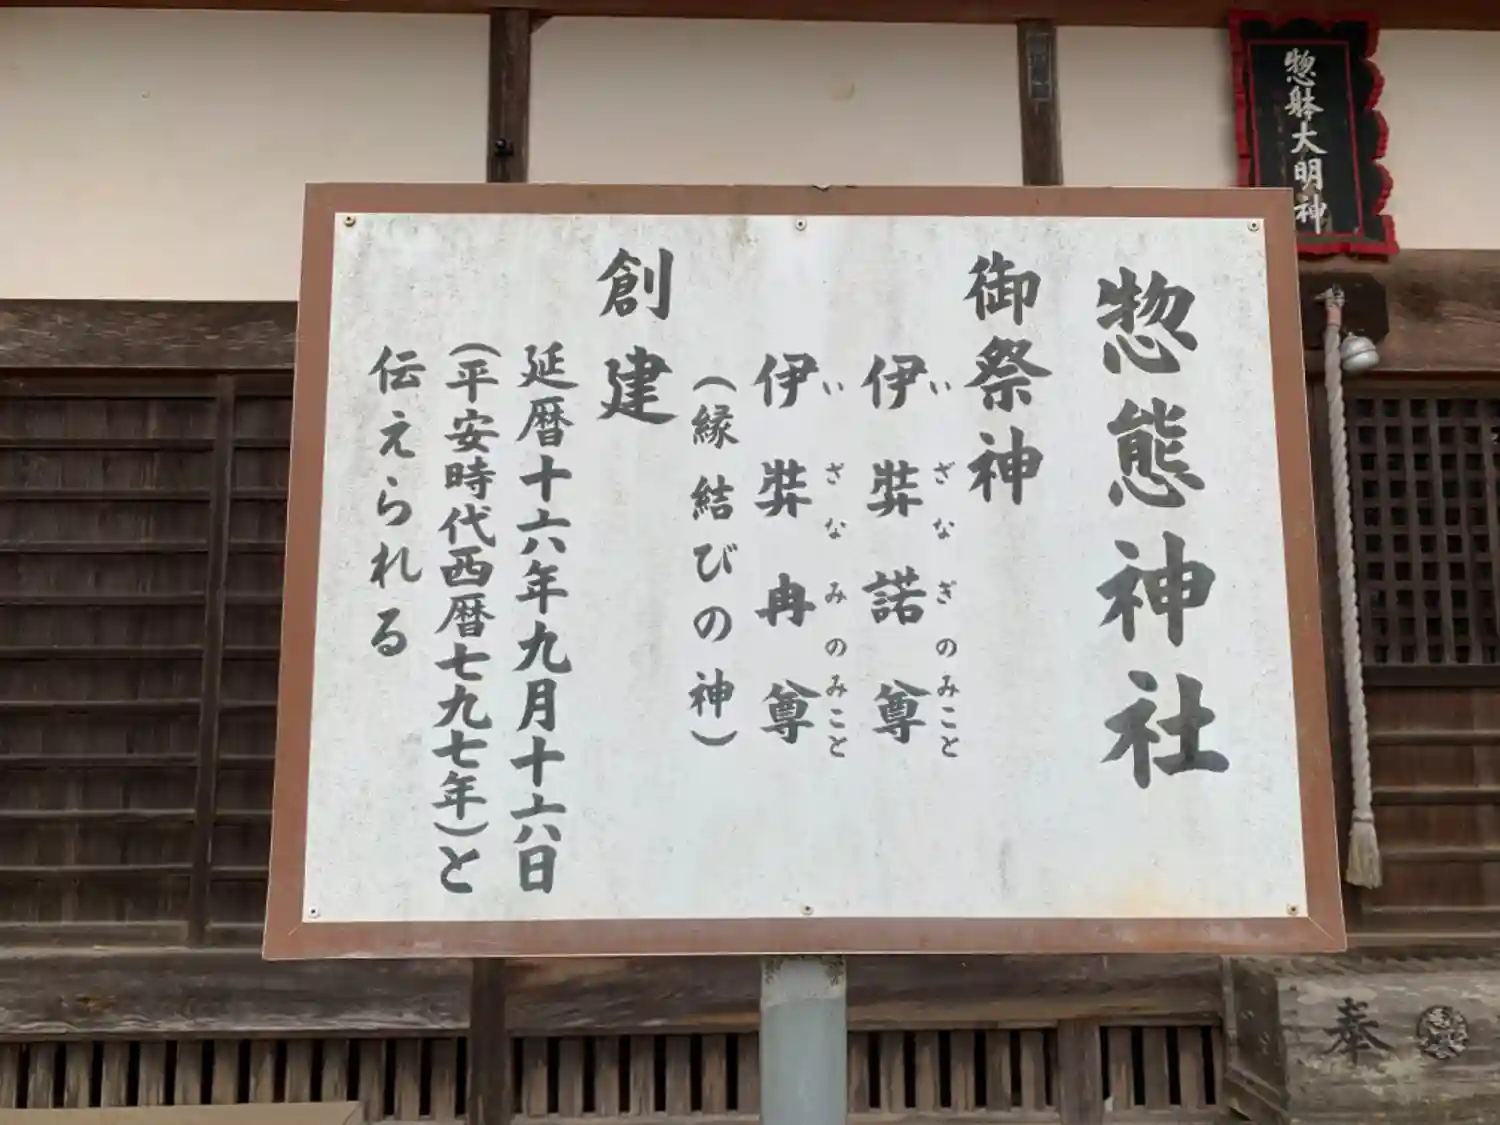 惣態神社
御祭神
伊弉諾尊
いざなぎのみこと
伊弉冉尊
いざなみのみこと
（縁結びの神）
創建
延暦十六年九月十六日
（平安時代西暦七九七年）と
伝えられる
惣躰大明神
奉